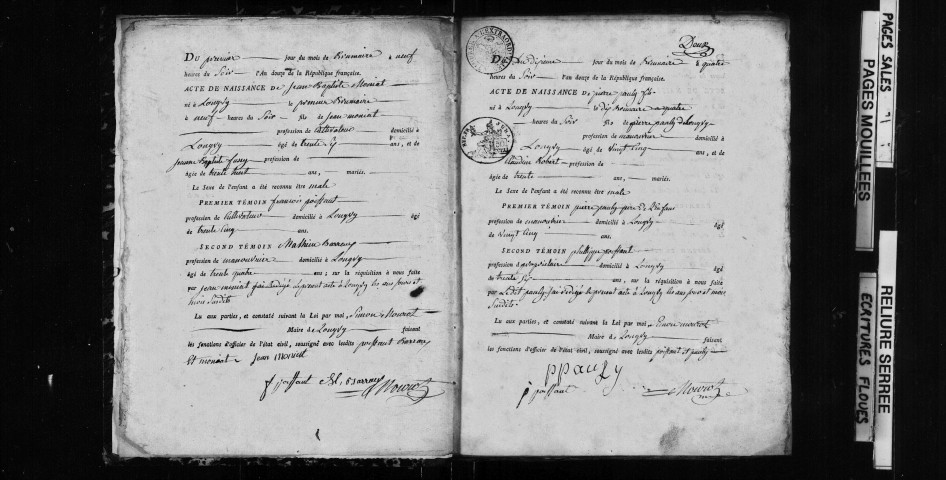 Du premier jour du mois de Brumaire à neuf
heures du Soir l'An douze de la République française.
ACTE DE NAISSANCE de Jean Baptiste Moniat
né à Longvy le premier Brumaire
à neuf heures du Soir fils de Jean moniat
profession de cultivateur domicilié à
Longvy âgé de trente ans, et de
Jeanne Baptiste profession de
âgée de trente huit ans, mariés.
Le Sexe de l'enfant a été reconnu être male
PREMIER TÉMOIN françois poissant
profession de cultivateur domicilié à Longvy âgé
de trente cinq ans.
SECOND TÉMOIN Mathieu Barraux
profession de manouvrier domicilié à Longvy
âgé de trente quatre ans; sur la réquisition à nous faite
par jean moniat j'ai rédigé le présent acte à Longvy les an jour et
mois susdits
Lu aux parties, et constaté suivant la Loi par moi, Simon Mourot
Maire de Longvy faisant
les fonctions d'officier de l'état civil, soussigné avec lesdits poissant Barraux
et moniat jean moniat
f poissant Barraux Mourot
Deux
Du dixième jour du mois de Brumaire à quatre
heures du Soir l'An douze de la République française.
ACTE DE NAISSANCE de pierre pauly
né à Longvy le dix Brumaire a quatre
heures du Soir fils de pierre pauly de Longvy
profession de manouvrier domicilié à
Longvy âgé de vingt cinq ans, et de
Claudine Robert profession de
âgée de trente ans, mariés.
Le Sexe de l'enfant a été reconnu être male
PREMIER TÉMOIN pierre pauly père de l'enfant
profession de manouvrier domicilié à Longvy âgé
de vingt cinq ans.
SECOND TÉMOIN philippe poissant
profession domicilié à Longvy âgé
de trente six ans, sur la réquisition à nous faite
par Ledit pauly j'ai rédigé le présent acte à Longvy les an jour et mois
susdits
Lu aux parties, et constaté suivant la Loi par moi Simon mourot
Maire de Longvy faisant
les fonctions d'officier de l'état civil, soussigné avec lesdits poissant et pauly
ppauly
p poissant Mourot
PAGES SALES
PAGES MOUILLEES
RELIURE SERREE
ECRITURES FLOUES